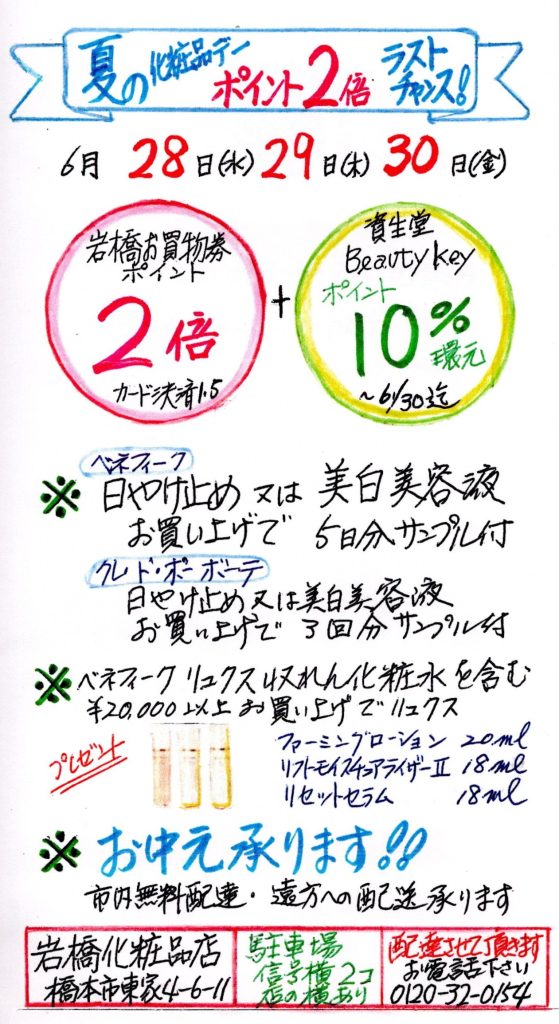 夏の化粧品デー
ポイント2倍
ラスト
チャンス!
6月 28日(水) 29日(木) 30日(金)
岩橋お買物券
ポイント
2倍
カード決済1.5
+
資生堂
Beauty Key
ポイント
10%
還元
～6/30迄
ベネフィーク
※ 日やけ止め又は 美白美容液
お買い上げで 5日分サンプル付
クレ・ド・ポー ボーテ
日やけ止め又は美白美容液
お買い上げで 3回分サンプル付
※ ベネフィークリュクス収れん化粧水を含む
¥20,000以上お買い上げでリュクス
プレゼント
ファーミングローション 20ml
リフトモイスチュアライザーⅡ 18ml
リセットセラム 18ml
※ お中元承ります!!
市内無料配達・遠方への配送承ります
岩橋化粧品店
橋本市東家4-6-11
駐車場
信号横2コ
店の横あり
配達させて頂きます
お電話下さい
0120-32-0154